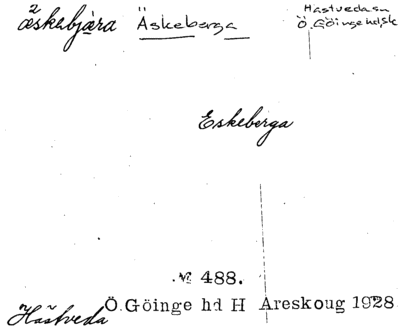 æskabjära Äskeberga Hästveda sn
Ö. Göinge hd Sk
Eskeberga
N: 488.
Hästveda Ö. Göinge hd H Areskoug 1928